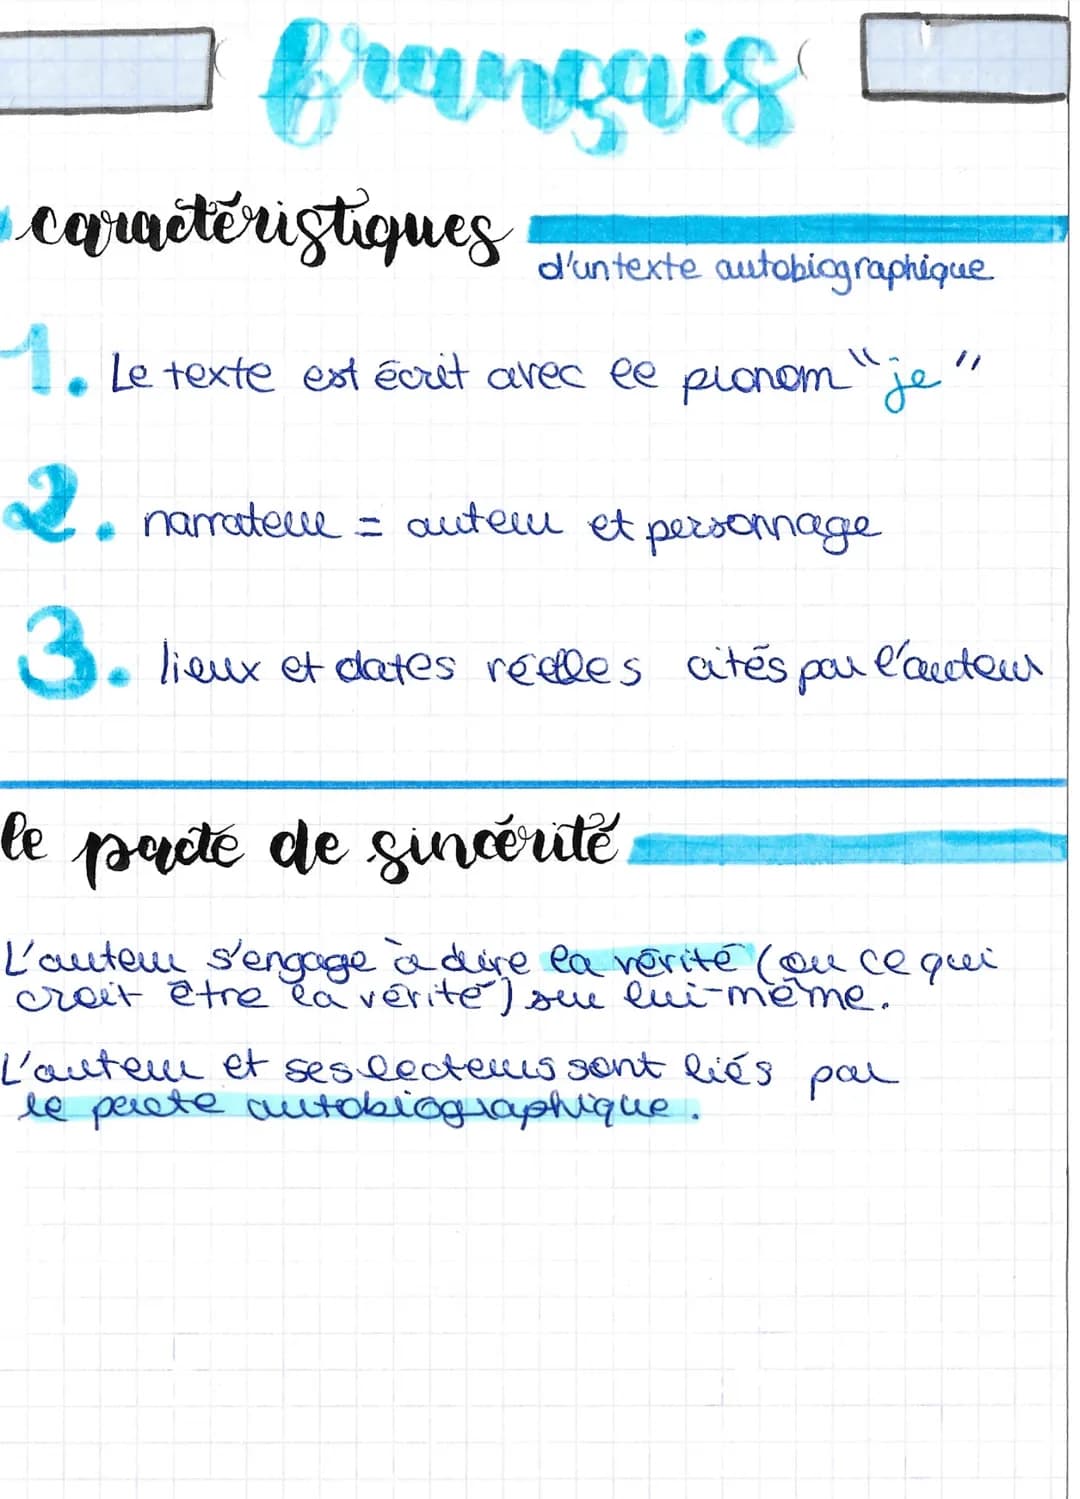 français
caractéristiques
d'un texte autobiographique
1. Le texte est écrit avec le pronom "je"
2. narrateur = auteur et personnage
3. lieux et dates réelles cités par l'auteur
le pacte de sincérité
L'auteur s'engage à dire la vérité (ou ce qui
croit être la vérité) sur lui-même.
L'auteur et ses lecteurs sont liés par
le pacte autobiographique.